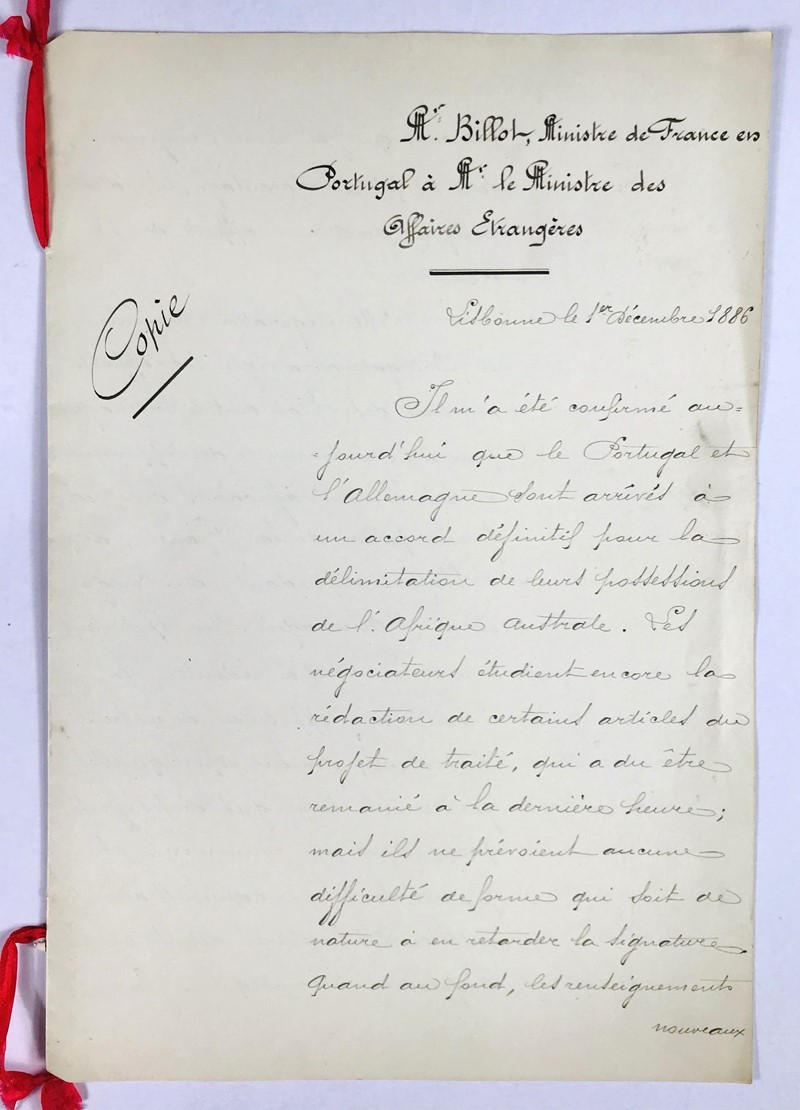 Mr. Billot, Ministre de France en
Portugal à Mr. le Ministre des
Affaires Etrangères
Copie
Lisbonne le 1er Décembre 1886
Il m'a été confirmé au=
=jourd'hui que le Portugal et
l'Allemagne sont arrivés à
un accord définitif pour la
délimitation de leurs possessions
de l'Afrique australe. Les
négociateurs étudient encore la
rédaction de certains articles du
projet de traité, qui a du être
remanié à la dernière heure;
mais ils ne prévoient aucune
difficulté de forme qui soit de
nature à en retarder la signature.
Quand au fond, les renseignements
nouveaux